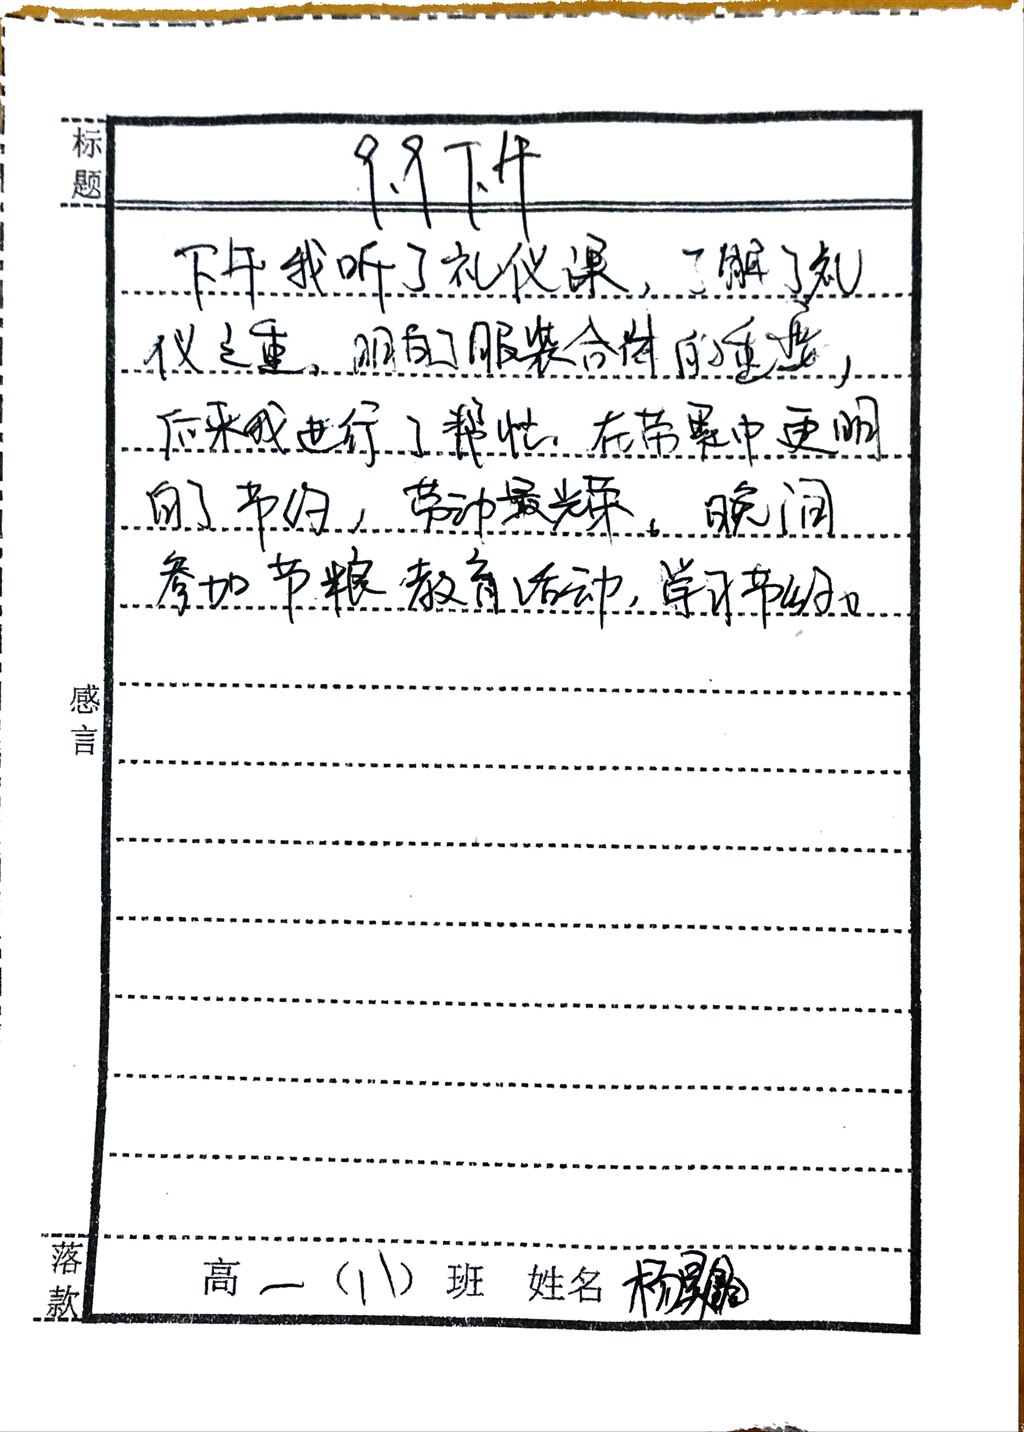 标题
9.9 下午
下午我听了礼仪课，了解了礼
仪之重。明白了服装合体的重要，
后来我进行了帮忙。在劳累中更明
白了节约，劳动最光荣。晚间
参加节粮教育活动，学习节约。
感言
落款
高一（八）班 姓名 杨昊